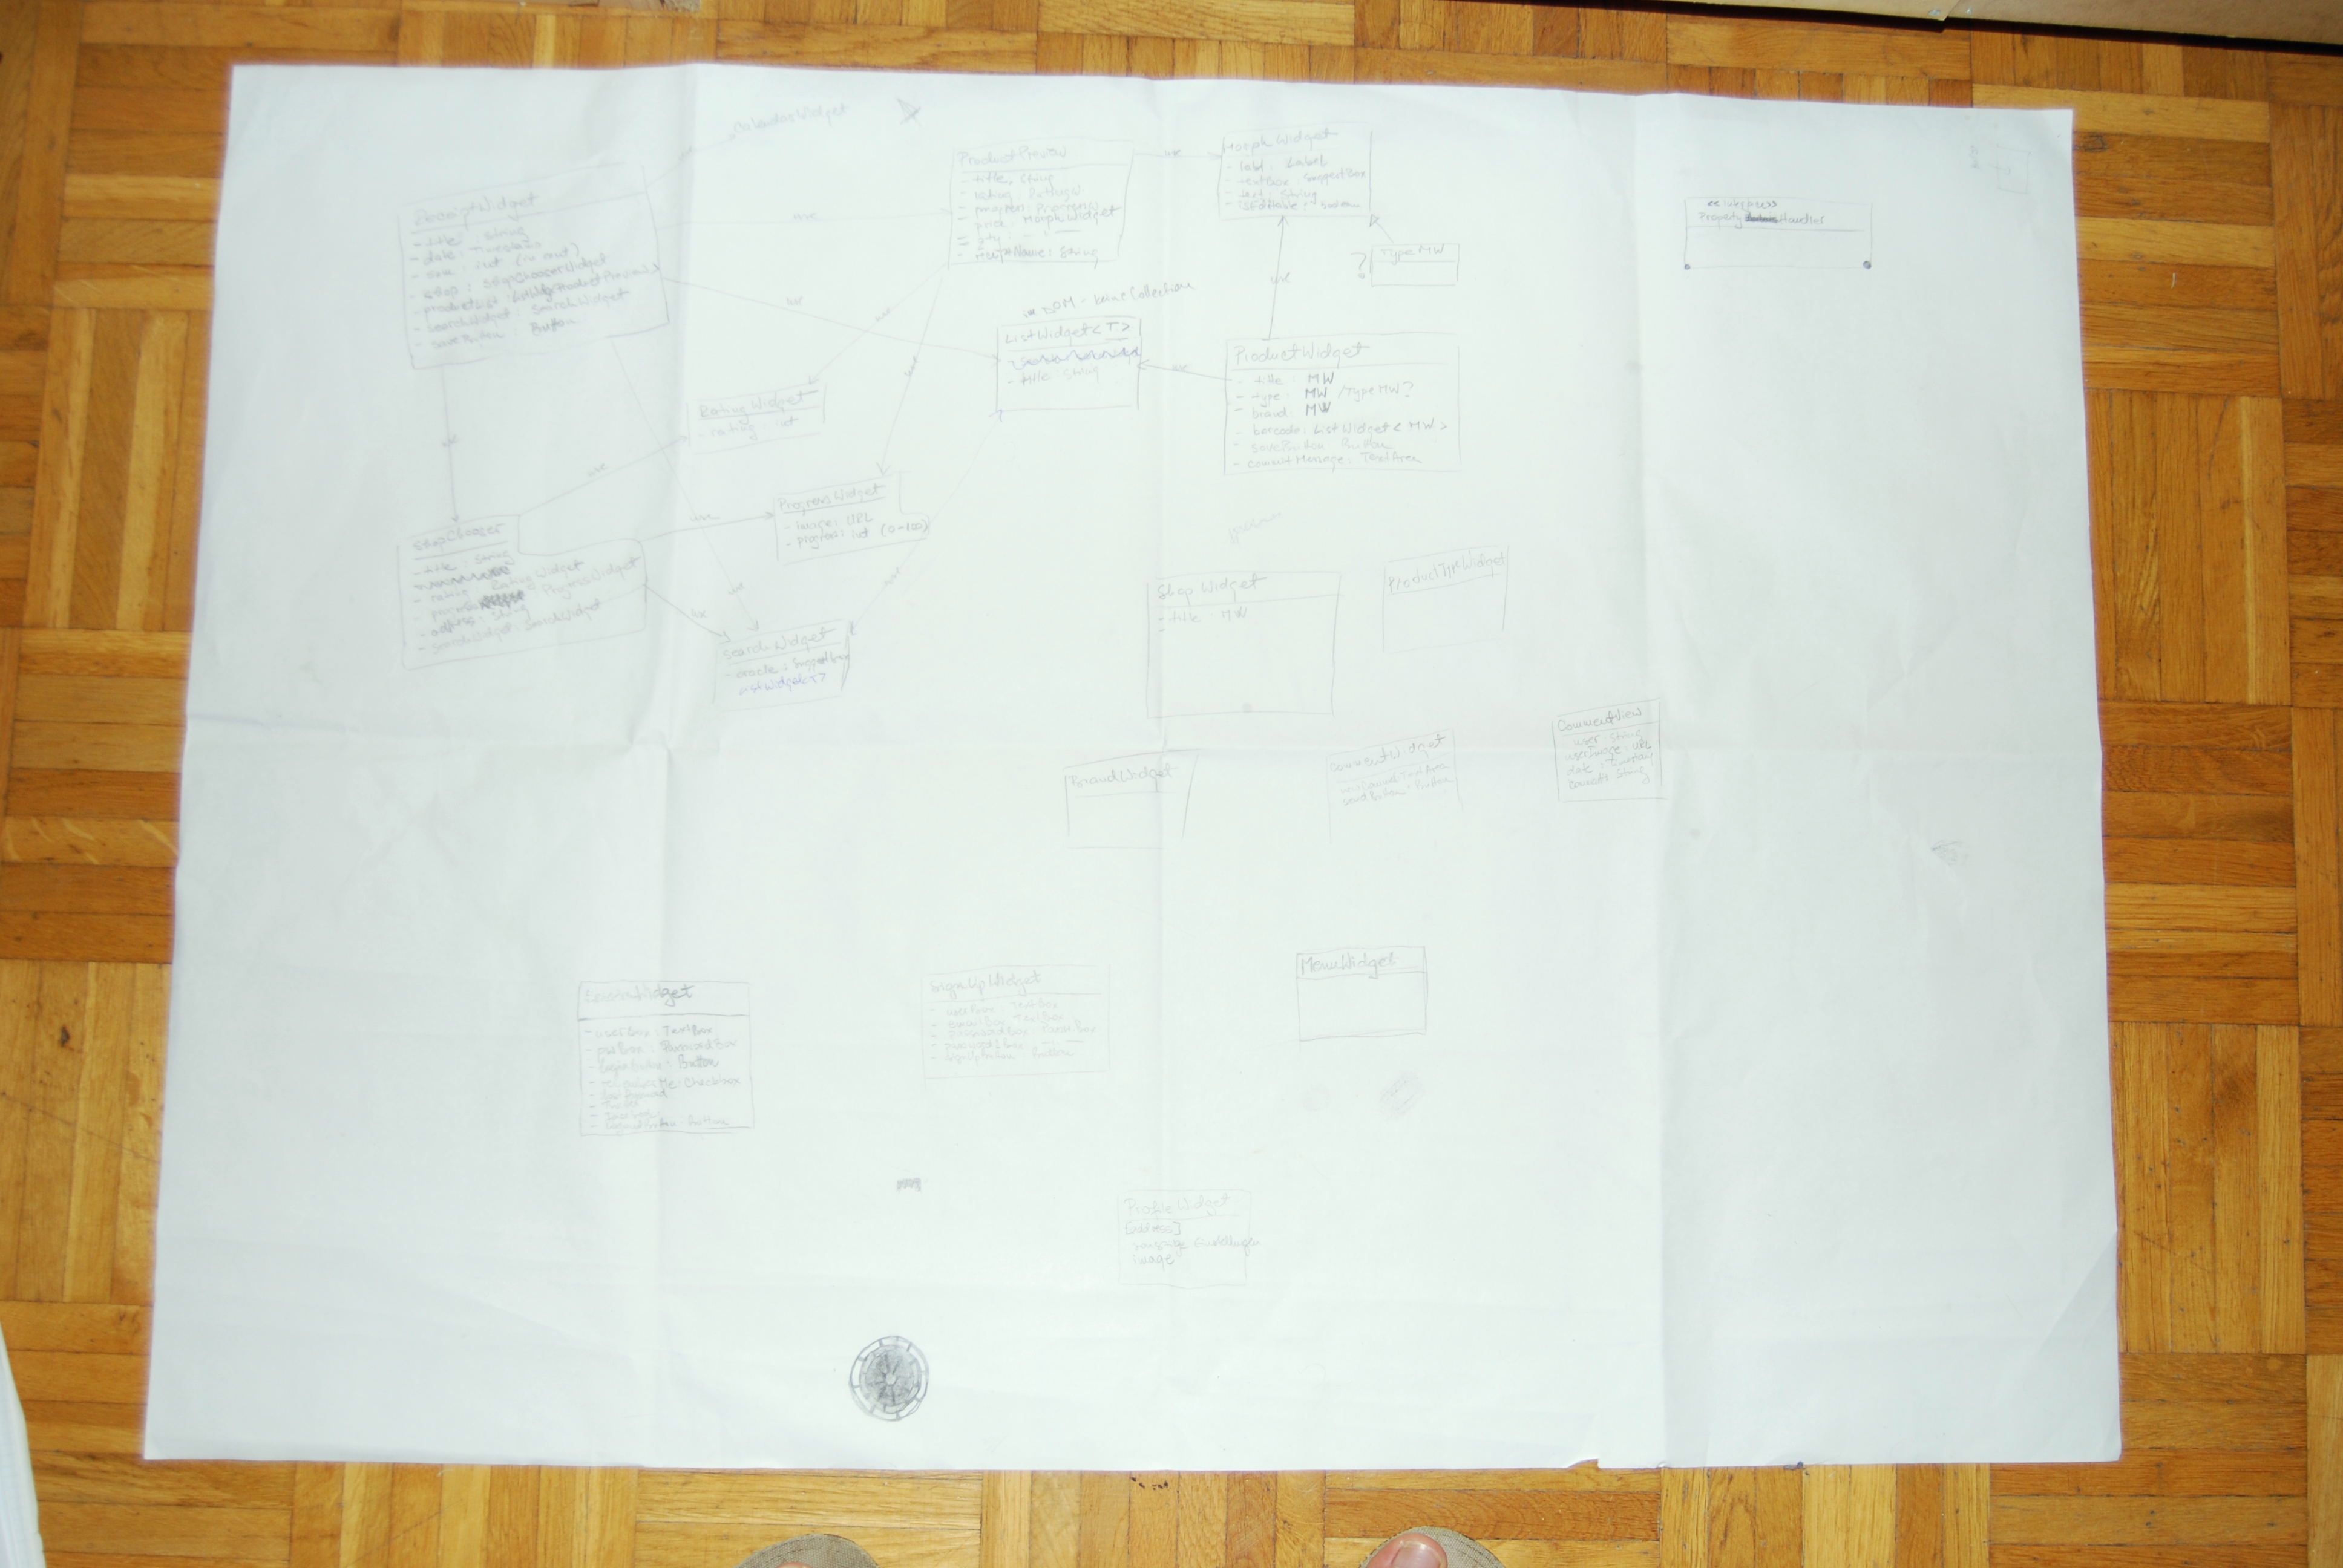 CalendarWidget
use
ReceiptWidget
- title : String
- date : Timestamp
- sum : int (in cent)
- shop : ShopChooserWidget
- productList : ListWidget<ProductPreview>
- searchWidget : SearchWidget
- saveButton : Button
use
ProductPreview
- title: String
- rating: RatingW
- progress: Progress
- price: MorphWidget
- qty :
- receiptName: String
use
MorphWidget
- label : Label
- textBox : SuggestBox
- text : String
- : boolean
?
TypeMW
use
PropertyHandler
use
use
im DOM - keine Collection
ListWidget<T>
- title : String
use
use
ProductWidget
- title : MW
- type : MW /TypeMW?
- brand : MW
- barcode : ListWidget<MW>
- saveButton : Button
- commitMessage : TextArea
RatingWidget
- rating : int
use
use
use
ProgressWidget
- image : URL
- progress : int (0-100)
use
ShopChooser
- title : String
- rating RatingWidget
- progress ProgressWidget
- address : String
- searchWidget SearchWidget
use
use
use
SearchWidget
- oracle : SuggestBox
ListWidget<T>
ShopWidget
- title : MW
-
ProductTypeWidget
BrandWidget
CommentWidget
newComment : TextArea
sendButton : Button
CommentView
user : String
userImage : URL
date : Timestamp
comment : String
Widget
- userBox : TextBox
- pwBox : PasswordBox
- loginButton : Button
- rememberMe : Checkbox
-
-
-
- logoutButton : Button
SignUpWidget
- TextBox
- emailBox : TextBox
- passwordBox :
- password2Box
- signUpButton : Button
MenuWidget
ProfileWidget
[address]
sonstige Einstellungen
image